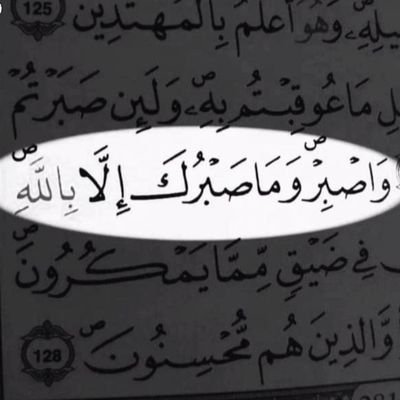 وَهُوَ أَعْلَمُ بِالْمُهْتَدِينَ 125
مَا عُوقِبْتُم بِهِۦ وَلَئِن صَبَرْتُمْ
وَاصْبِرْ وَمَا صَبْرُكَ إِلَّا بِاللَّهِ
فِي ضَيْقٍ مِّمَّا يَمْكُرُونَ
وَّالَّذِينَ هُم مُّحْسِنُونَ 128